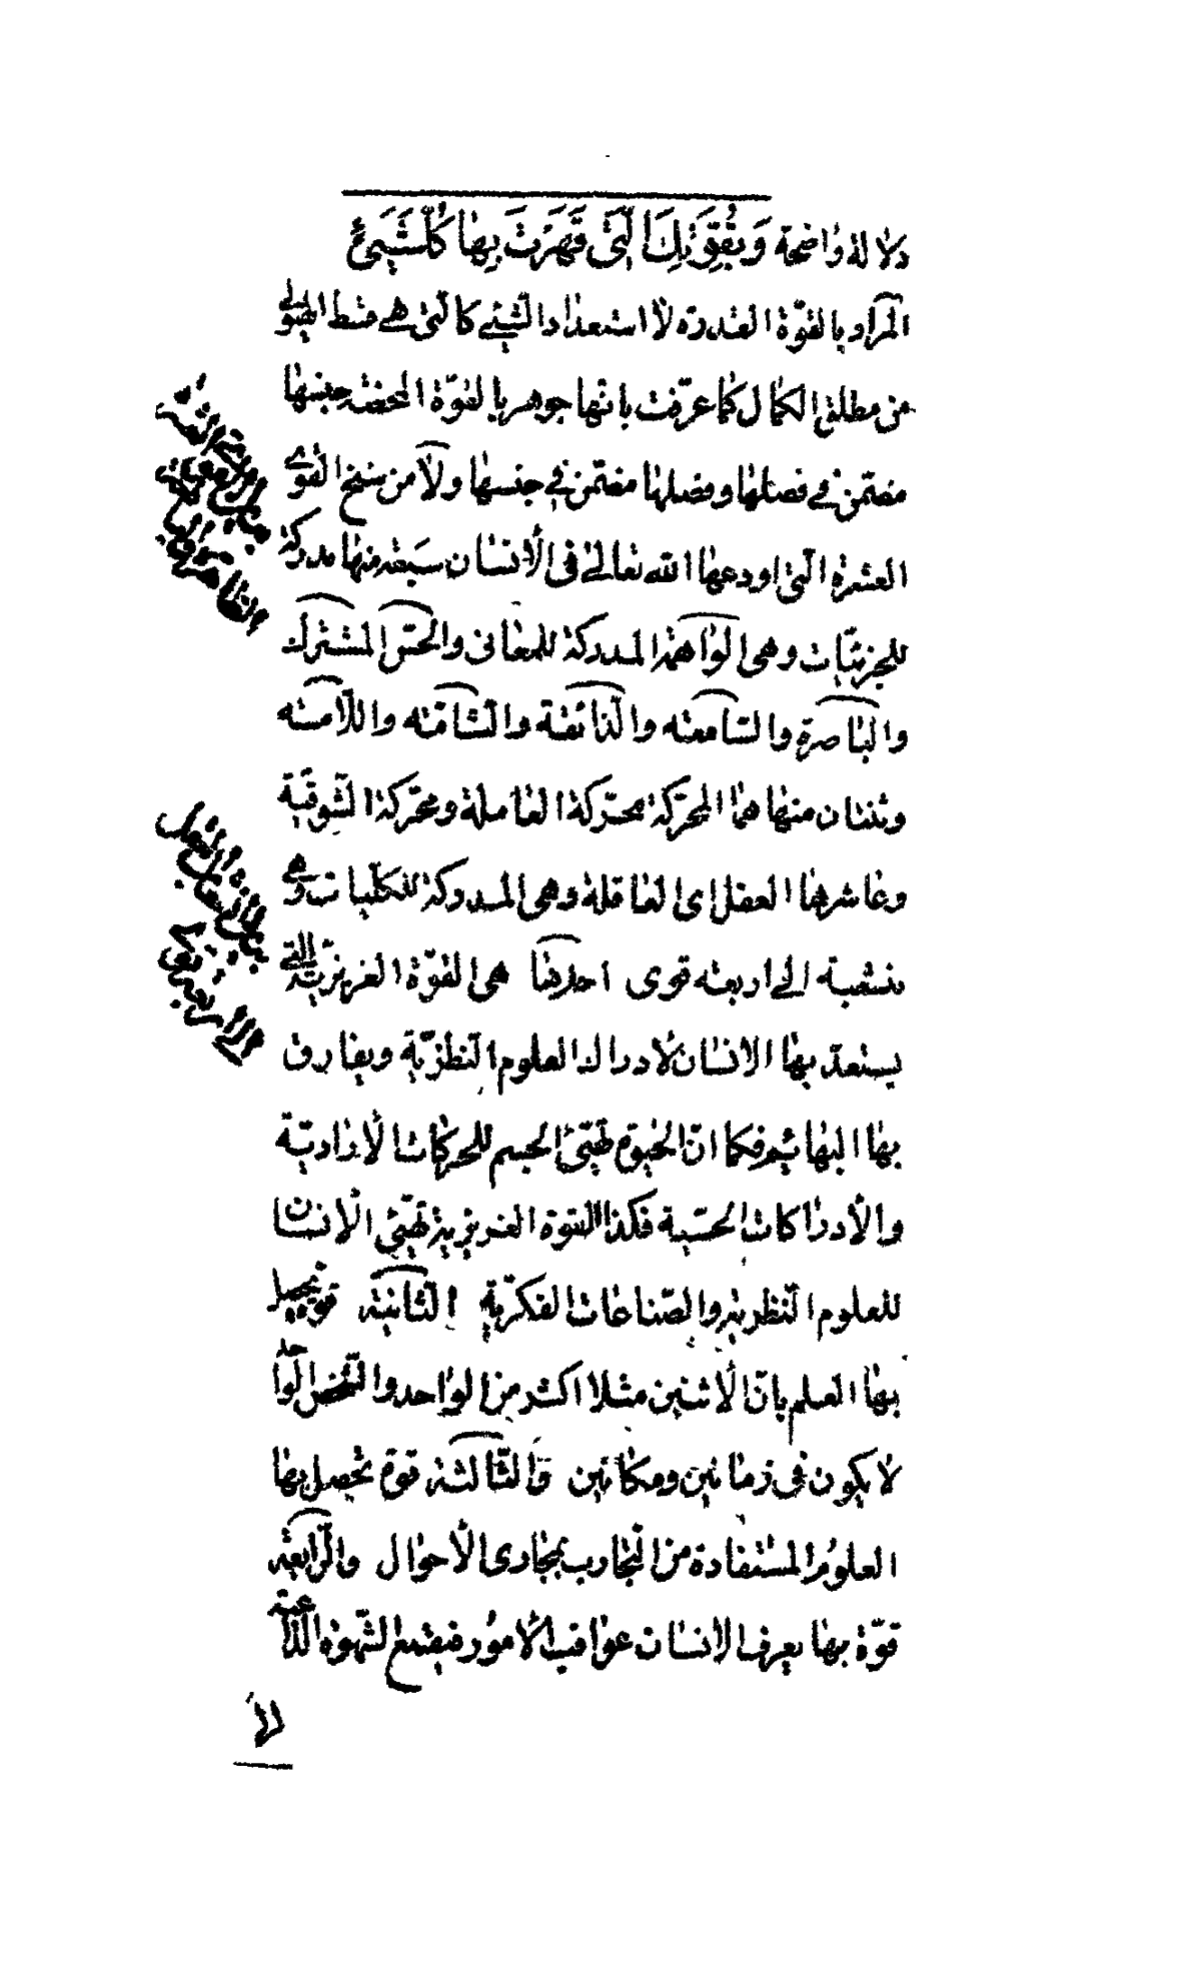 دلالة واضحة وَبِقُوَّتِكَ الَّتي قَهَرْتَ بِهٰا كُلَّ شَيْئٍ
المراد بالقوّة القدرة لا استعداد الشيئ كالتى هي فقط الهيولى
من مطلق الكمال كما عرّفت بانّها جوهر بالقوّة المحضة جنسها
مضمّن في فصلها وفصلها مضمّن في جنسها ولا من سنخ القوى
العشرة التى اودعها الله تعالى فى الأنسان سبعة منها مدركة
للجزئيّات وهى الواهمة المدركة للمعانى والحسّ المشترك
والباصرة والسّامعة والذّائقة والشّامّة واللّامسة
وثنتان منها هما المحرّكة محرّكة العاملة ومحرّكة الشّوقيّة
وعاشرها العقل اى العاقلة وهى المدركة للكلّيات وهي
منشعبة الى اربعة قوى احديها هى القوّة الغريزيّة التي
يستعدّ بها الانسان لأدراك العلوم النّظريّة ويفارق
بها البهائم فكما انّ الحيوة تهيّئ الجسم للحركات الأراديّة
والأدراكات الحسّية فكذا القوة الغريزية تهيّئ الأنسان
للعلوم النّظرية والصّناعات الفكريّة الثّانية قوة يحصل
بها العلم بانّ الأثنين مثلا اكثر من الواحد والشّخص الواحد
لا يكون فى زمانين ومكانين والثّالثة قوة تحصل بها
العلوم المستفادة من التّجارب بمجارى الأحوال والرّابعة
قوّة بها يعرف الانسان عواقب الأمور فيقمع الشّهوة الدّاعية
الا